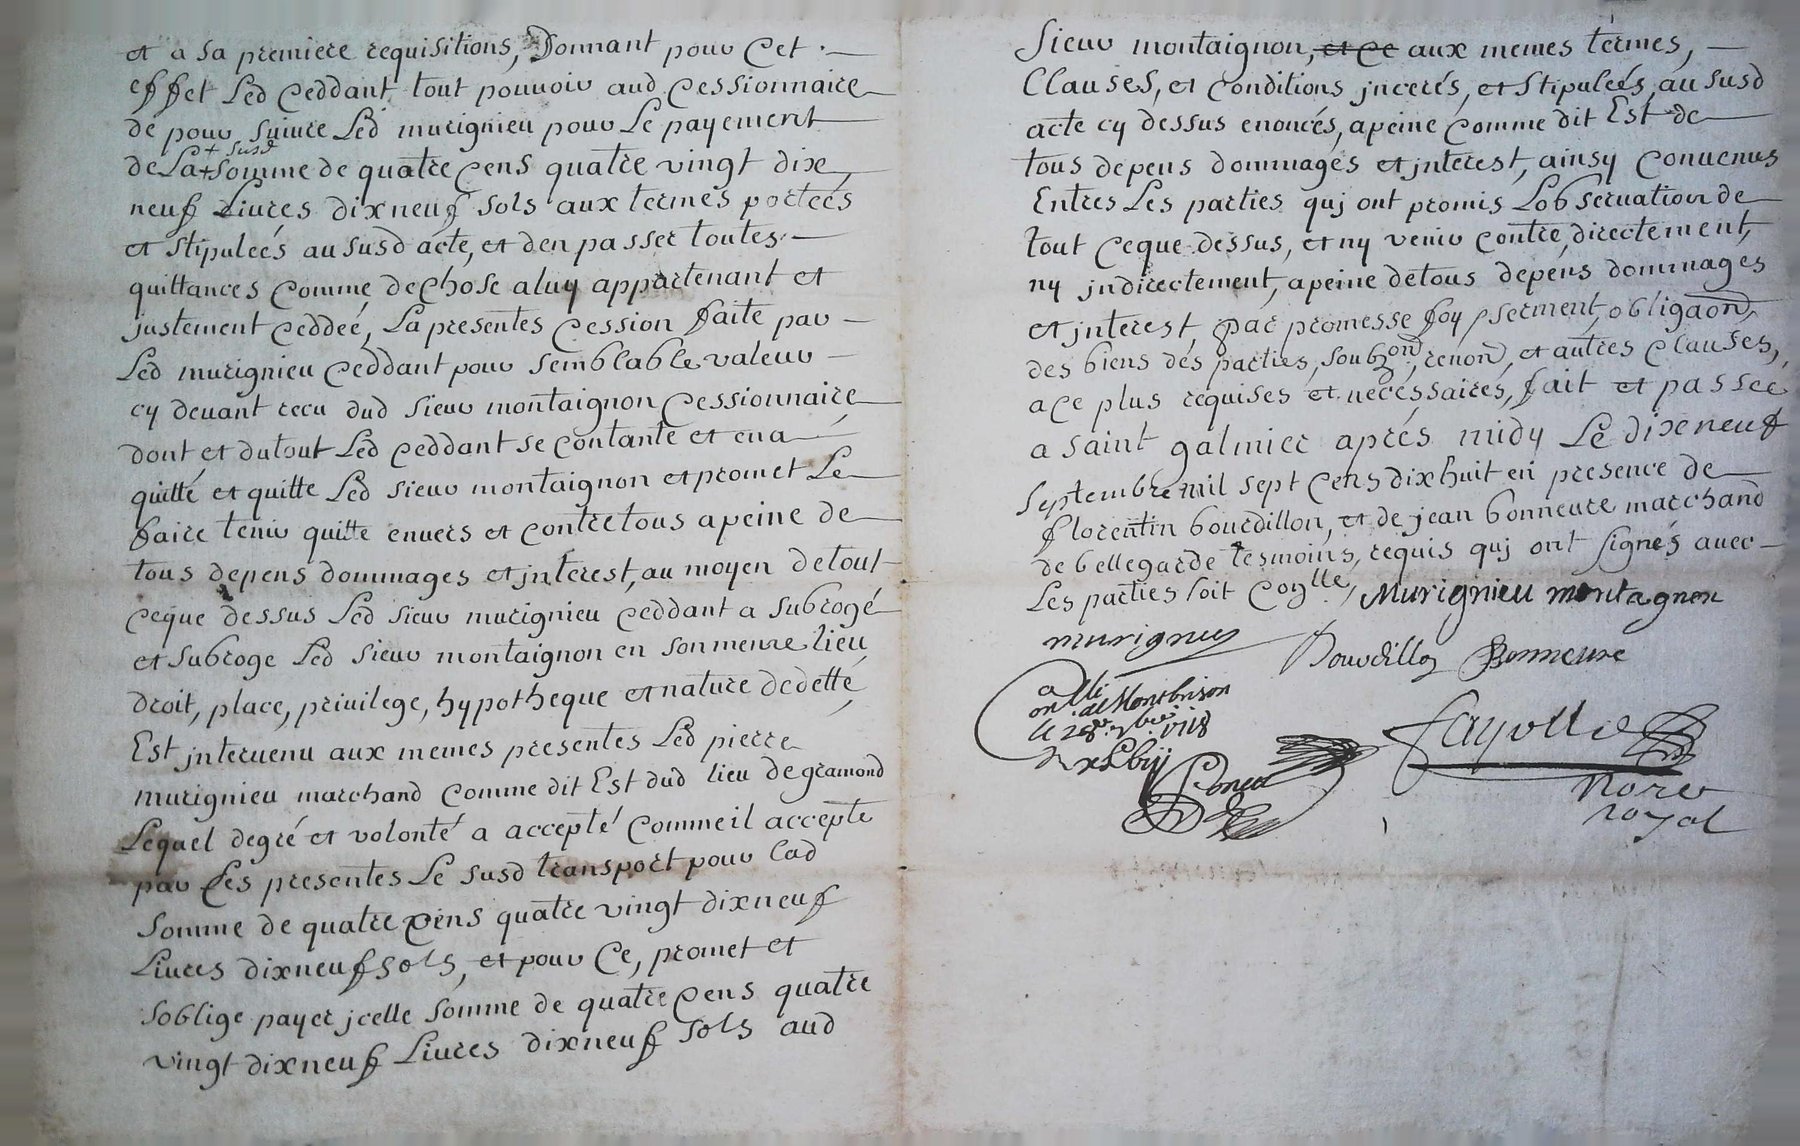 et a sa premiere requisitions, Donnant pour cet
effet Led ceddant tout pouuoir aud cessionnaire
de pour suiure Led murignieu pour Le payement
susd
de La + somme de quatre cens quatre vingt dix
neuf Liures dixneuf sols aux termes portées
et stipuleés au susd acte, et den passer toutes
quittances comme de chose a luy appartenant et
justement ceddeé, La presentes cession faite par
Led murignieu ceddant pour semblable valeur
cy deuant receu dud sieur montaignon cessionnaire
dont et dutout Led ceddant se contante et en a
quitté et quitte Led sieur montaignon et promet Le
faire tenir quitte enuers et contre tous a peine de
tous depens dommages et jnterest, au moyen de tout
ceque dessus Led sieur murignieu ceddant a subrogé
et subroge Led sieur montaignon en son meme lieu
droit, place, priuilege, hypotheque et nature de dette,
Est jnteruenu aux memes presentes Led pierre
murignieu marchand comme dit Est dud lieu de gramond
Lequel degré et volonté a accepté comme il accepte
par ces presentes Le susd transport pour lad
somme de quatre cens quatre vingt dixneuf
Liures dixneuf sols, et pour ce, promet et
soblige payer jcelle somme de quatre cens quatre
vingt dixneuf Liures dixneuf sols aud
sieur montaignon, et ce aux memes termes,
clauses, et conditions jncerés, et stipuleés au susd
acte cy dessus enoncés, a peine comme dit Est de
tous depens dommages et jnterest, ainsy conuenus
Entres Les parties quj ont promis Lobseruation de
tout ceque dessus, et ny venir contre, directement,
ny jndirectement, a peine de tous depens dommages
et jnterest, par promesse foy serment, obligaon,
des biens des parties, soubzon, renon, et autres clauses,
a ce plus requises et necessaires, fait et passée
a saint galmier aprés midy Le dixneuf
septembre mil sept cens dixhuit en presence de
florentin bourdillon, et de jean bonneure marchand
de bellegarde tesmoins, requis quj ont signés auec
Les parties soit conlle, Murignieu montagnon
murignieu
Bourdillon Bonneure
Collé
on . de Montbrison
le 28e 7bre 1718

Fayolle
Nore
royal